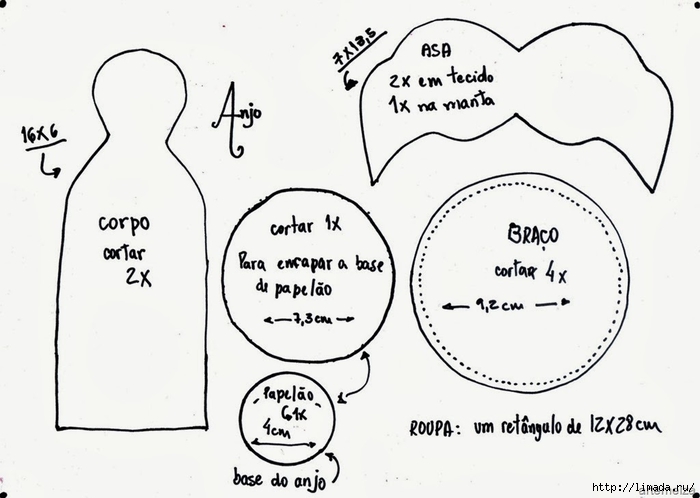 16x6
Anjo
7x13,5
ASA
2x em tecido
1x na manta
corpo
cortar
2x
cortar 1x
Para encapar a base
de papelão
7,3cm
BRAÇO
cortar 4x
9,2cm
Papelão
4cm
base do anjo
ROUPA: um retângulo de 12x28cm
http://limada.ru/